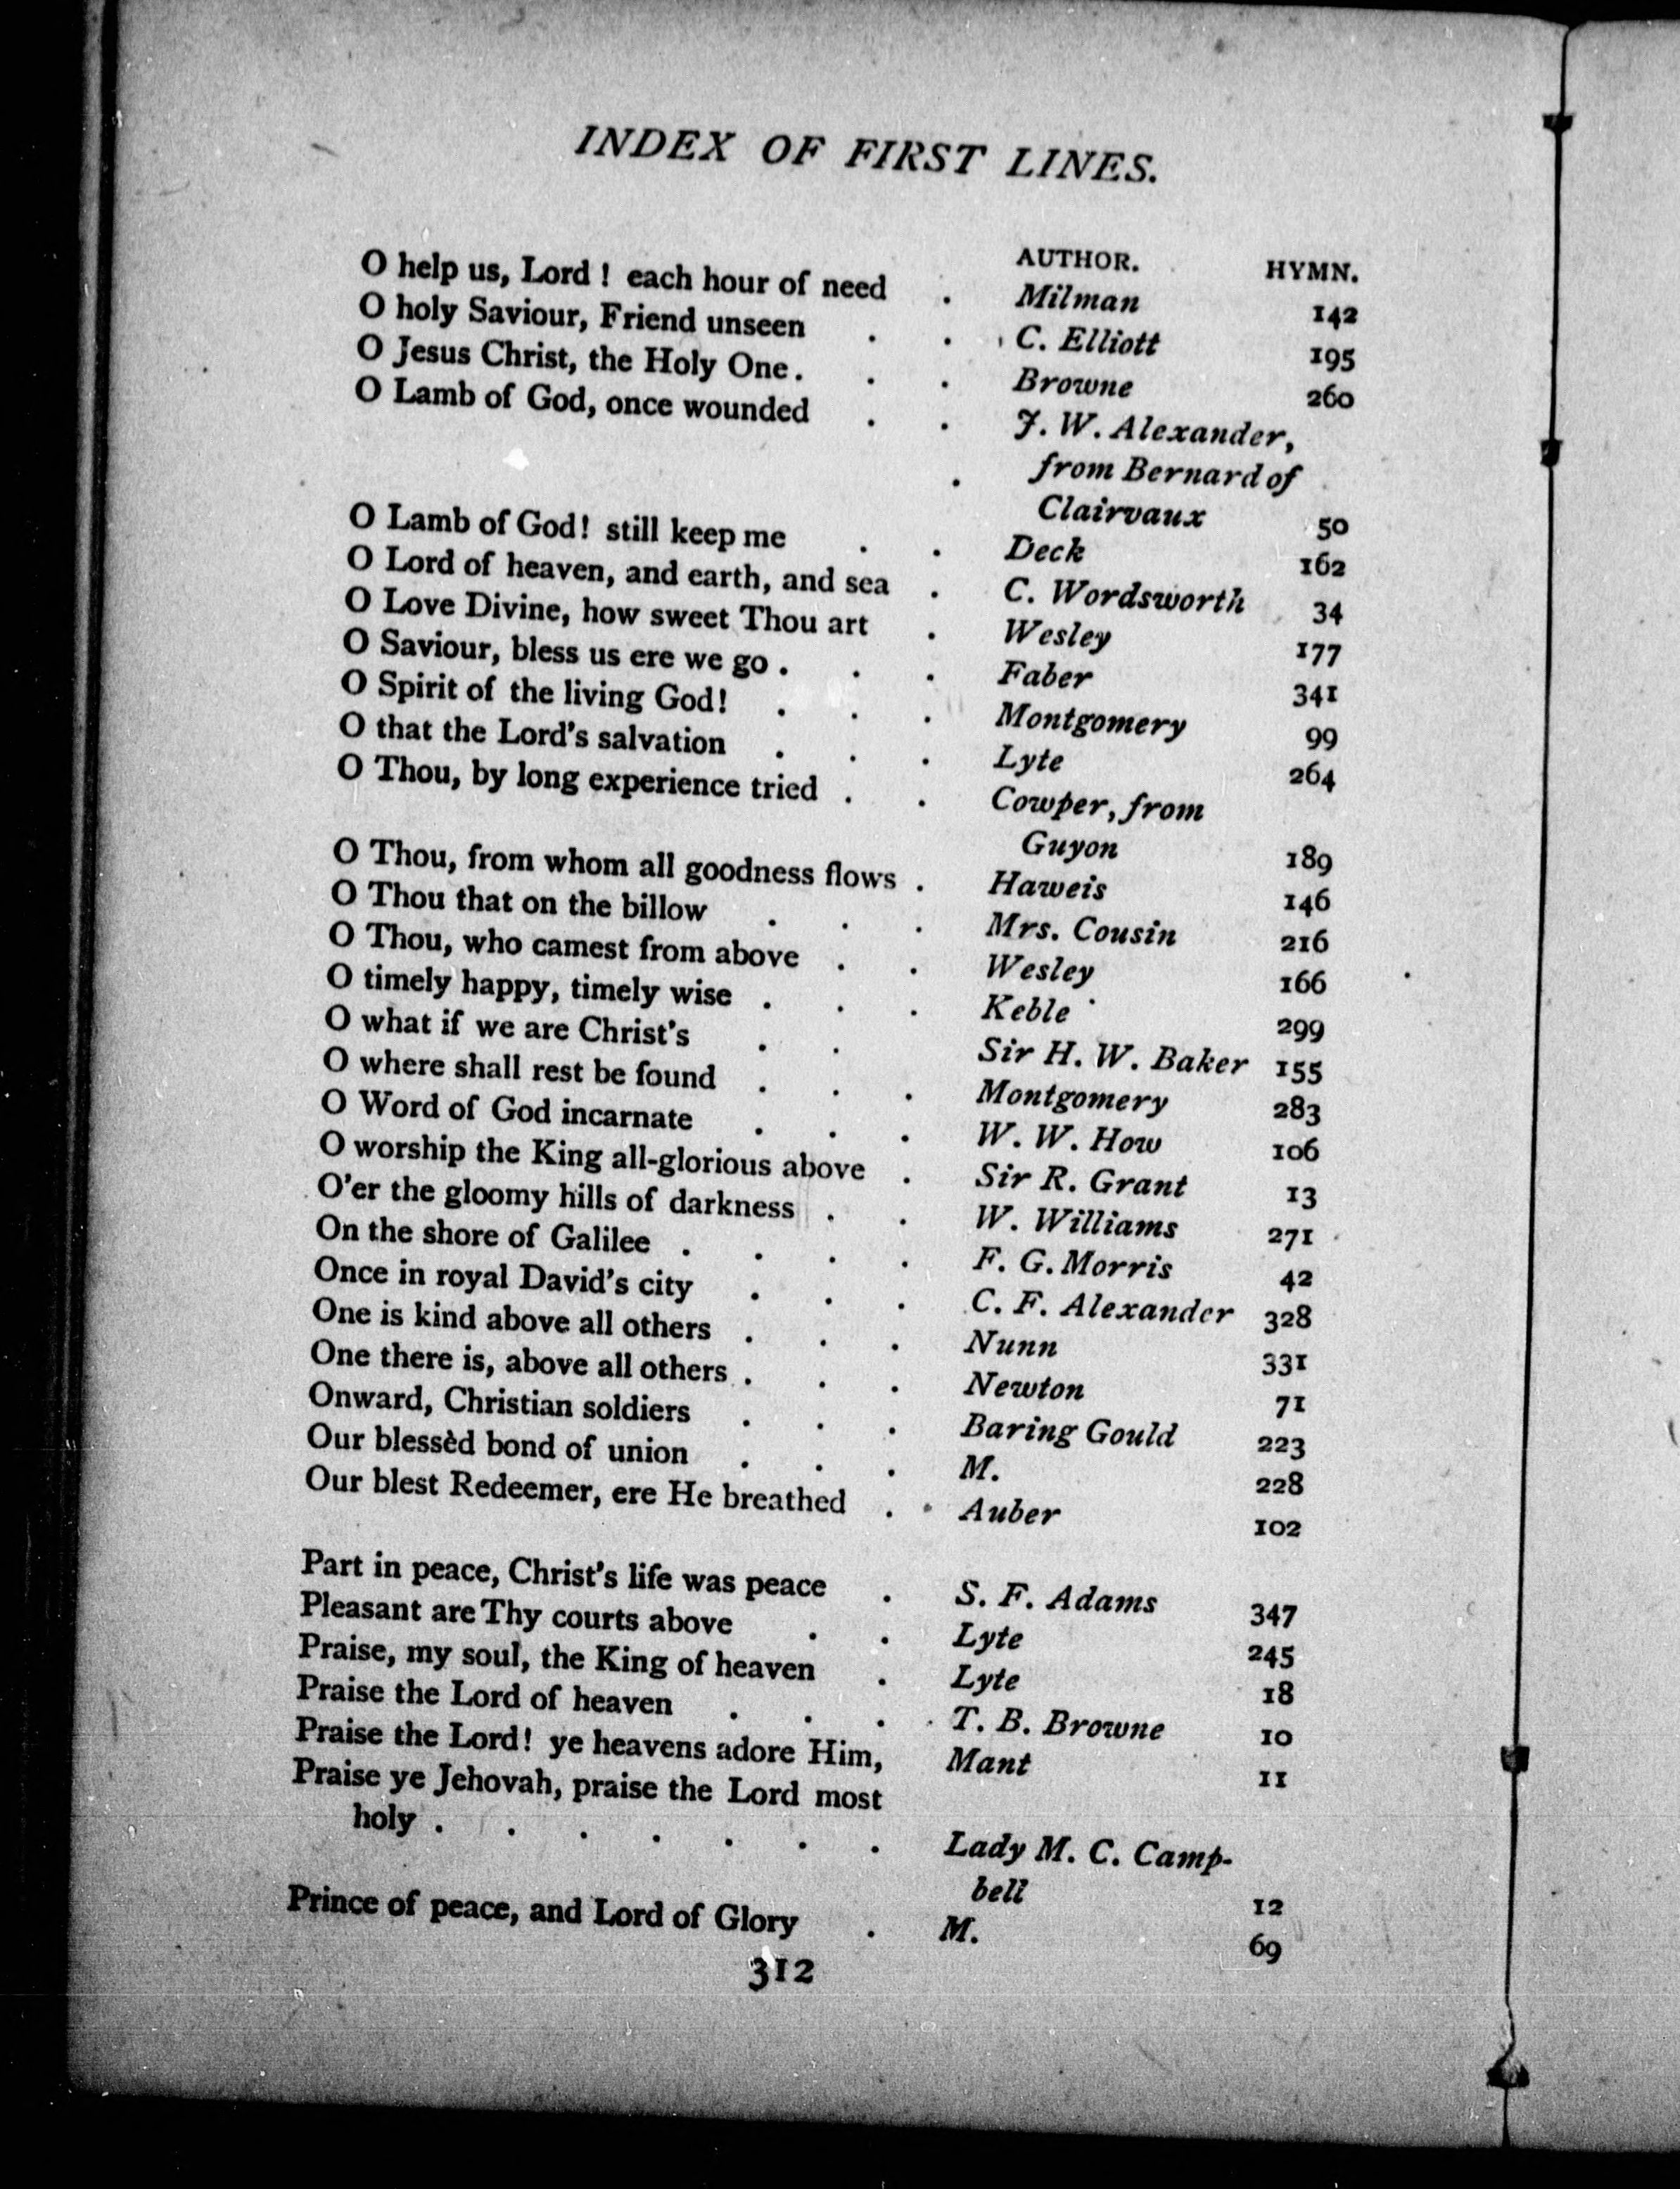 INDEX OF FIRST LINES.
AUTHOR. HYMN.
O help us, Lord ! each hour of need . Milman 142
O holy Saviour, Friend unseen . . C. Elliott 195
O Jesus Christ, the Holy One . . . Browne 260
O Lamb of God, once wounded . . J. W. Alexander,
. from Bernard of
Clairvaux 50
O Lamb of God! still keep me . . Deck 162
O Lord of heaven, and earth, and sea . C. Wordsworth 34
O Love Divine, how sweet Thou art . Wesley 177
O Saviour, bless us ere we go . . . Faber 341
O Spirit of the living God! . . . Montgomery 99
O that the Lord's salvation . . . Lyte 264
O Thou, by long experience tried . . Cowper, from
Guyon 189
O Thou, from whom all goodness flows . Haweis 146
O Thou that on the billow . . . Mrs. Cousin 216
O Thou, who camest from above . . Wesley 166
O timely happy, timely wise . . . Keble 299
O what if we are Christ's . . Sir H. W. Baker 155
O where shall rest be found . . . Montgomery 283
O Word of God incarnate . . . W. W. How 106
O worship the King all-glorious above . Sir R. Grant 13
O'er the gloomy hills of darkness . . W. Williams 271
On the shore of Galilee . . . . F. G. Morris 42
Once in royal David's city . . . C. F. Alexander 328
One is kind above all others . . . Nunn 331
One there is, above all others . . . Newton 71
Onward, Christian soldiers . . . Baring Gould 223
Our blessèd bond of union . . . M. 228
Our blest Redeemer, ere He breathed . . Auber 102
Part in peace, Christ's life was peace . S. F. Adams 347
Pleasant are Thy courts above . . Lyte 245
Praise, my soul, the King of heaven . Lyte 18
Praise the Lord of heaven . . . T. B. Browne 10
Praise the Lord! ye heavens adore Him, Mant 11
Praise ye Jehovah, praise the Lord most
holy . . . . . . . Lady M. C. Camp-
bell 12
Prince of peace, and Lord of Glory . M. 69
312